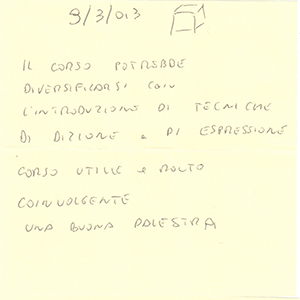 9/3/013
IL CORSO POTREBBE
DIVERSIFICARSI CON
L'INTRODUZIONE DI TECNICHE
DI DIZIONE e DI ESPRESSIONE
CORSO UTILE e MOLTO
COINVOLGENTE
UNA BUONA PALESTRA